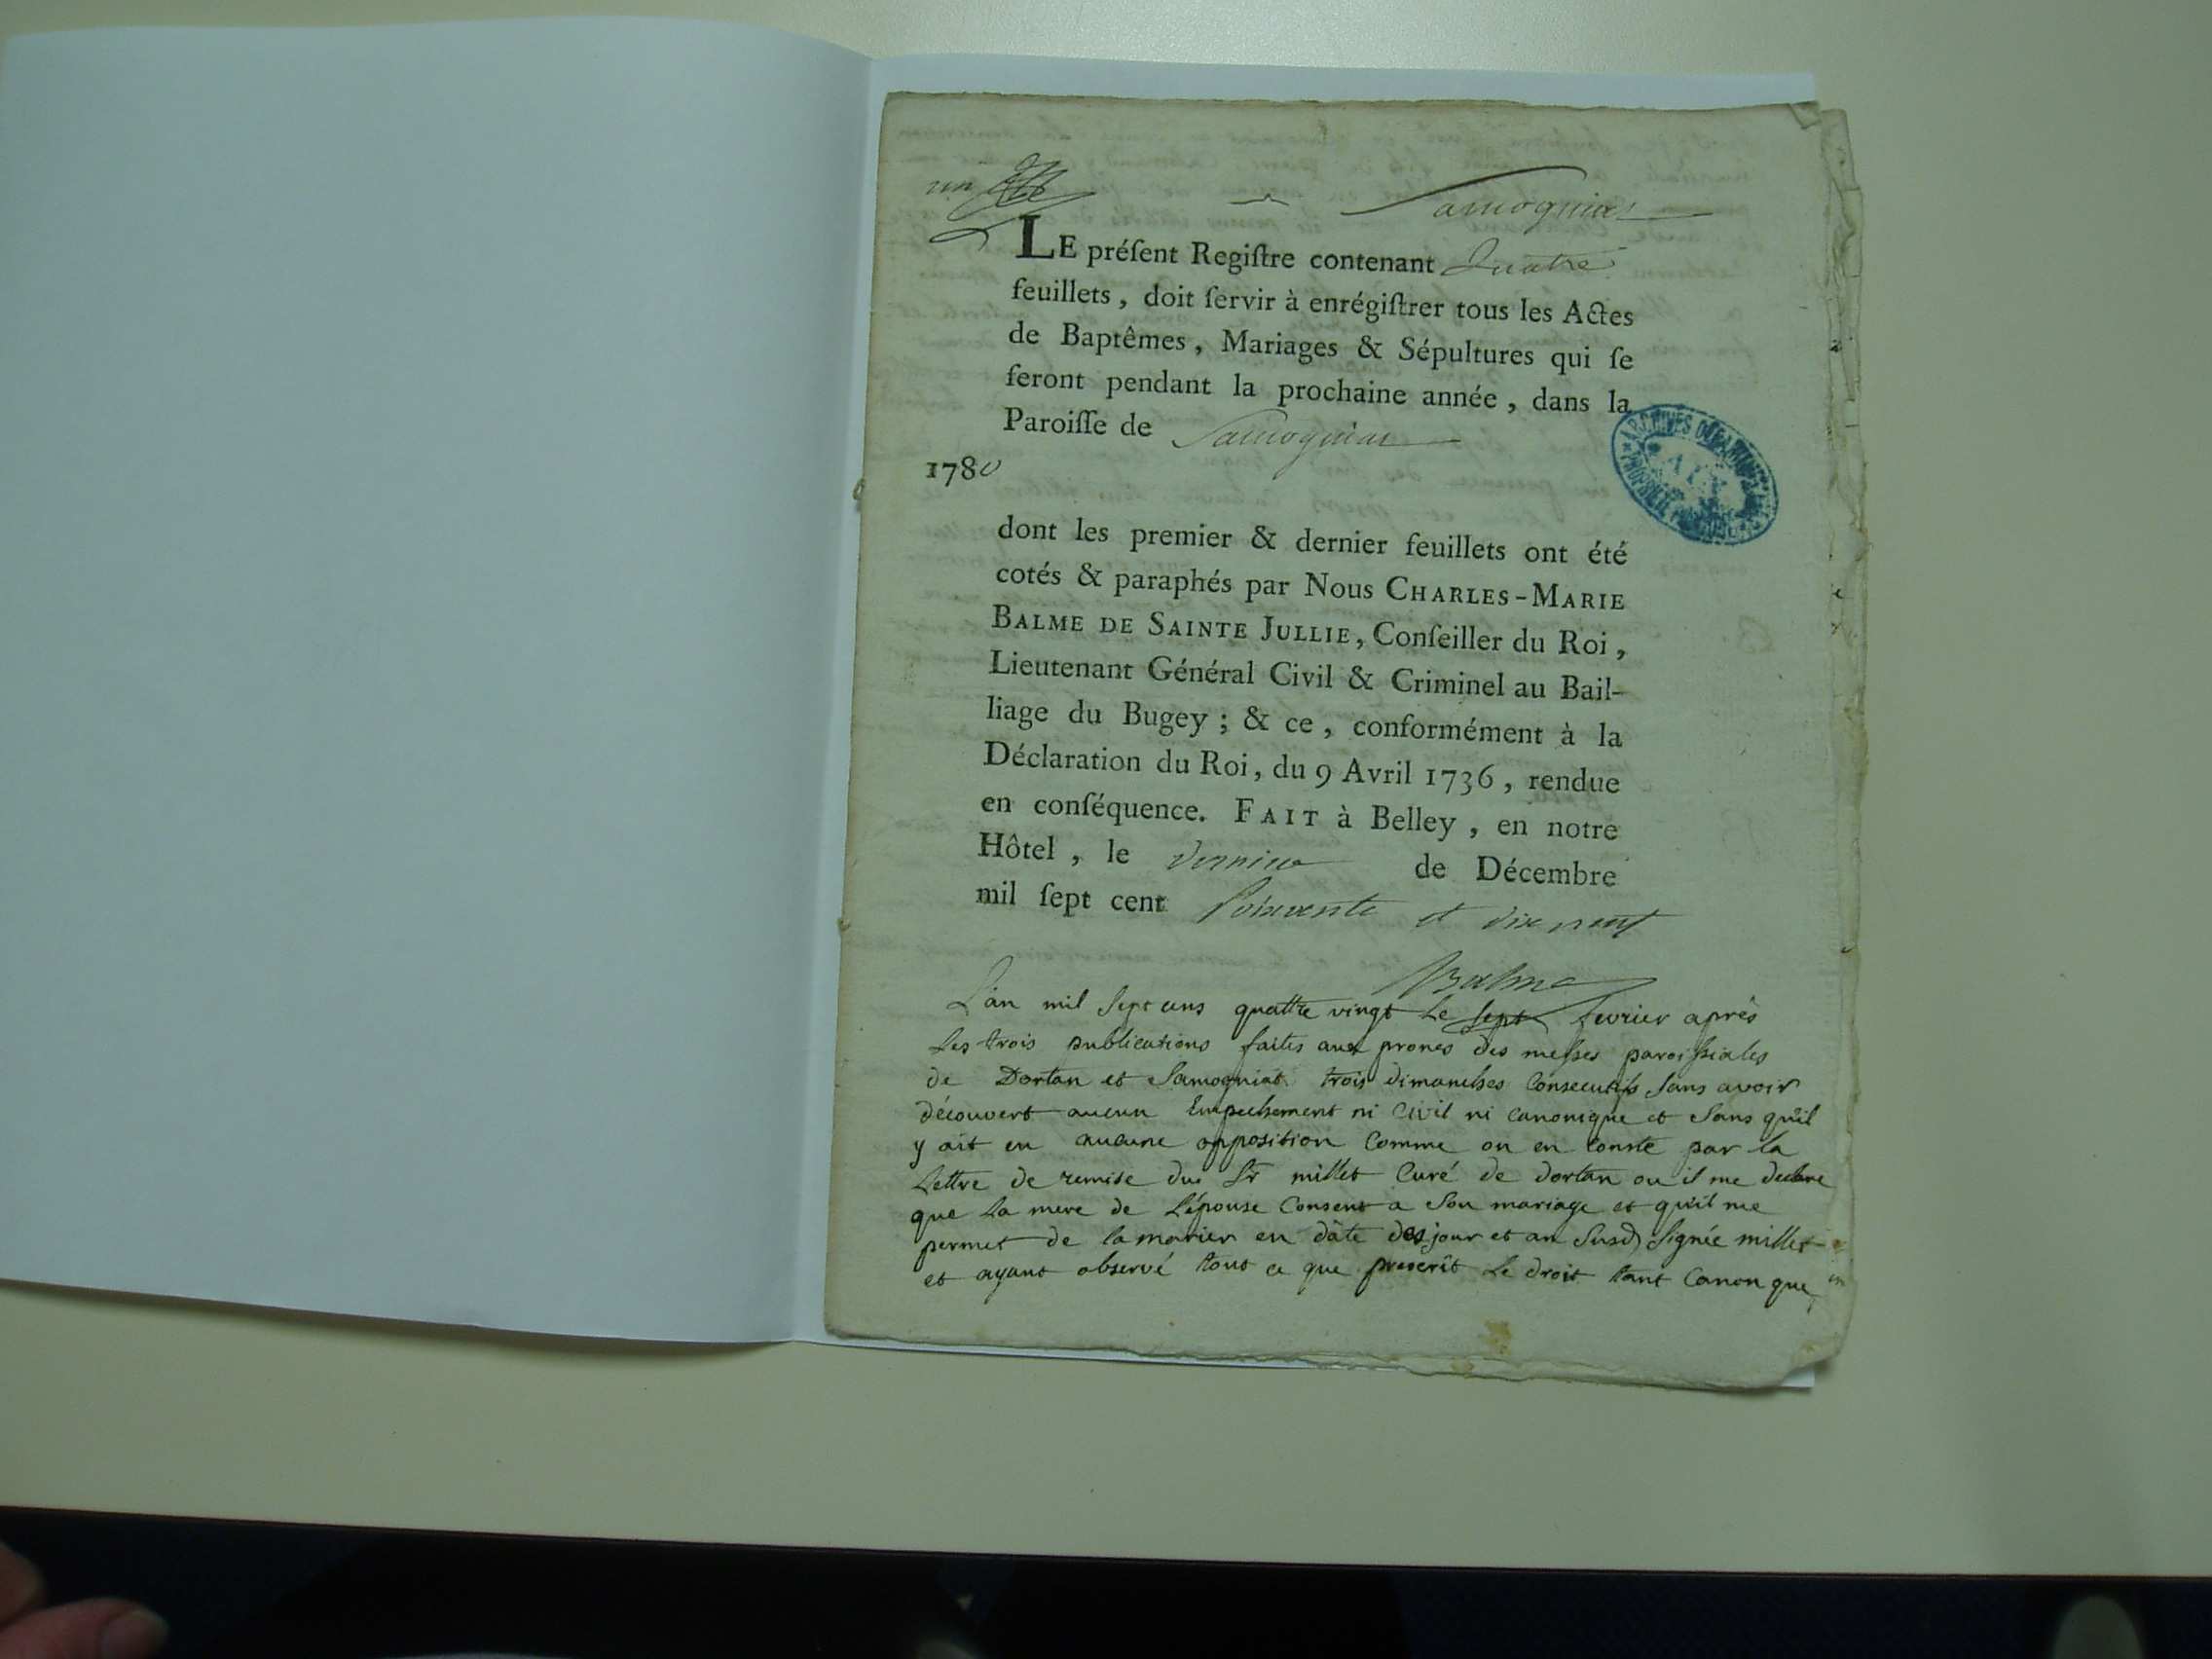 un
Samogniat
LE préſent Regiſtre contenant Quatre
feuillets, doit ſervir à enrégiſtrer tous les Actes
de Baptêmes, Mariages & Sépultures qui ſe
feront pendant la prochaine année, dans la
Paroiſſe de Samogniat
1780
ARCHIVES DÉPARTEMENTALES
AIN
PROPRIÉTÉ PUBLIQUE
dont les premier & dernier feuillets ont été
cotés & paraphés par Nous CHARLES-MARIE
BALME DE SAINTE JULLIE, Conſeiller du Roi,
Lieutenant Général Civil & Criminel au Bail-
liage du Bugey ; & ce, conformément à la
Déclaration du Roi, du 9 Avril 1736, rendue
en conſéquence. FAIT à Belley, en notre
Hôtel, le dernier de Décembre
mil ſept cent soixante et dix neuf
Balme
L'an mil sept cens quattre vingt le sept fevrier après
les trois publications faites aux prones des messes paroissiales
de Dortan et Samogniat trois dimanches consecutifs sans avoir
découvert aucun Empechement ni civil ni canonique et sans qu'il
y ait eu aucune opposition comme on en conste par la
lettre de remise du Sr millet curé de dortan ou il me declare
que la mere de l'épouse consent a son mariage et qu'il me
permet de la marier en dâte des jour et an susd signée millet
et ayant observé tout ce que prescrit le droit tant canon que